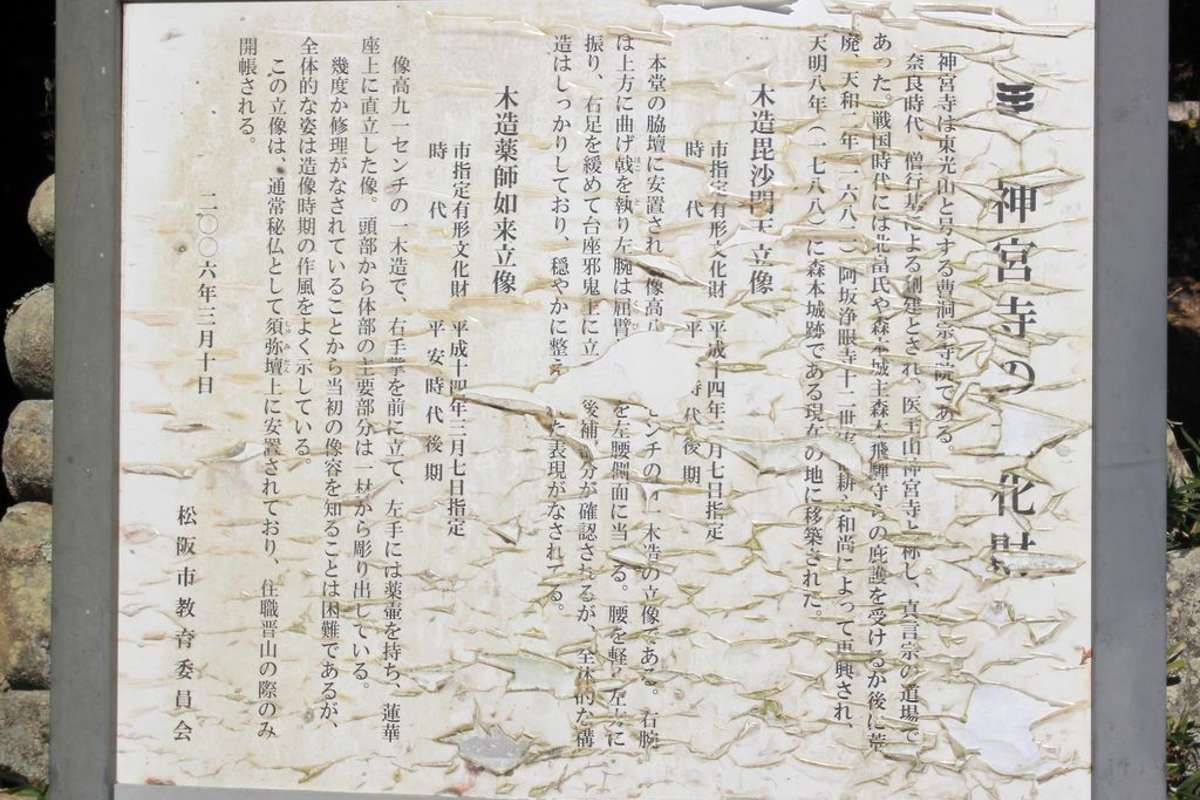 神宮寺の 化財
神宮寺は東光山と号する曹洞宗寺院である。
奈良時代、僧行基による創建とされ、医王山神宮寺と称し、真言宗の道場で
あった。戦国時代には北畠氏や森本城主森本飛騨守らの庇護を受けるが後に荒
廃、天和二年(一六八二)阿坂浄眼寺十二世 耕 和尚によって再興され、
天明八年(一七八八)に森本城跡である現在の地に移築された。
木造毘沙門天立像
市指定有形文化財 平成十四年 月七日指定
時代 平 時代後期
本堂の脇壇に安置され 像高 センチの 一木造の立像である。右腕
は上方に曲げ戟を執り左腕は屈臂 を左腰側面に当 る。腰を軽く左方に
振り、右足を緩めて台座邪鬼上に立 後補 分が確認されるが、全体的な構
造はしっかりしており、穏やかに整 た表現がなされてる。
木造薬師如来立像
市指定有形文化財 平成十四年三月七日指定
時代 平安時代後期
像高九一センチの一木造で、右手掌を前に立て、左手には薬壷を持ち、蓮華
座上に直立した像。頭部から体部の主要部分は一材から彫り出している。
幾度か修理がなされていることから当初の像容を知ることは困難であるが、
全体的な姿は造像時期の作風をよく示している。
この立像は、通常秘仏として須弥壇上に安置されており、住職晋山の際のみ
開帳される。
二〇〇六年三月十日
松阪市教育委員会